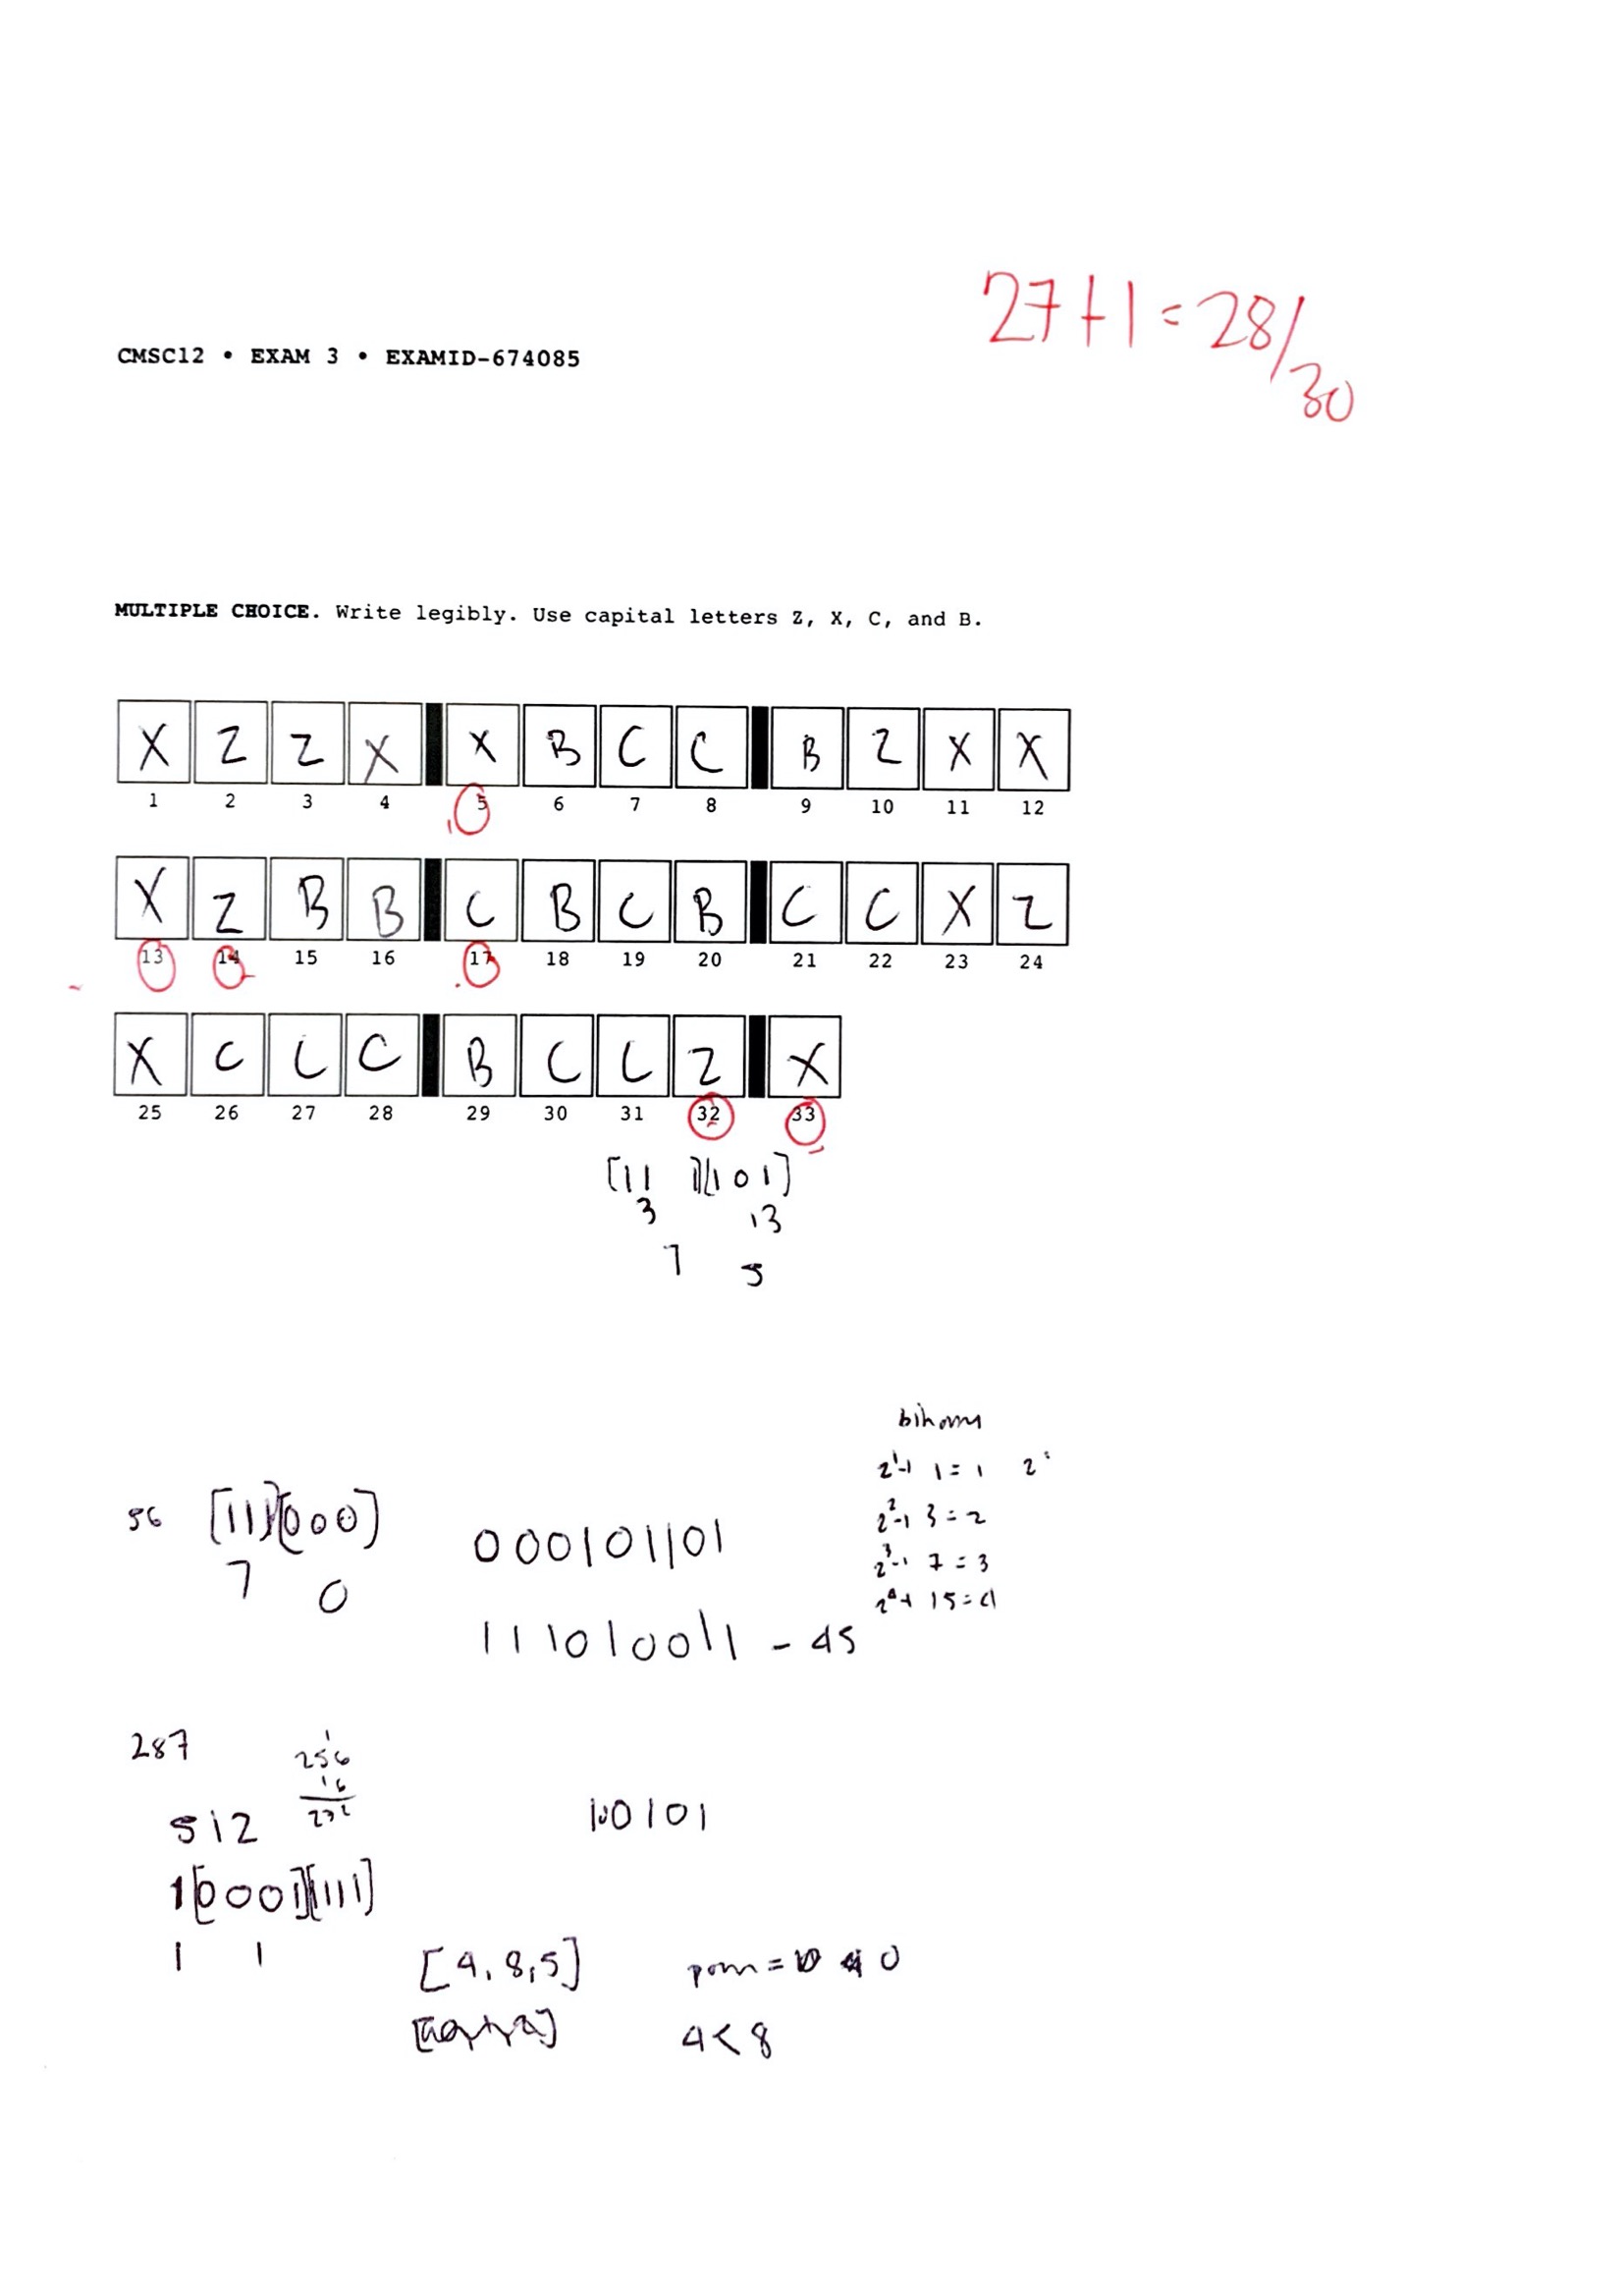 27+1=28/30
CMSC12 • EXAM 3 • EXAMID-674085
MULTIPLE CHOICE. Write legibly. Use capital letters Z, X, C, and B.
X Z Z X X B C C B Z X X
1 2 3 4 5 6 7 8 9 10 11 12
X Z B B C B C B C C X Z
13 14 15 16 17 18 19 20 21 22 23 24
X C C C B C C Z X
25 26 27 28 29 30 31 32 33
[11 1][101]
3 13
7 5
2^1-1 1=1 2
2^2-1 3=2
2^3-1 7=3
15=4
56 [111][000]
7 0
000101101
111010011 - 45
287
256
16
272
512
10101
1[0001][111]
1 1
[4,8,5]
4<8